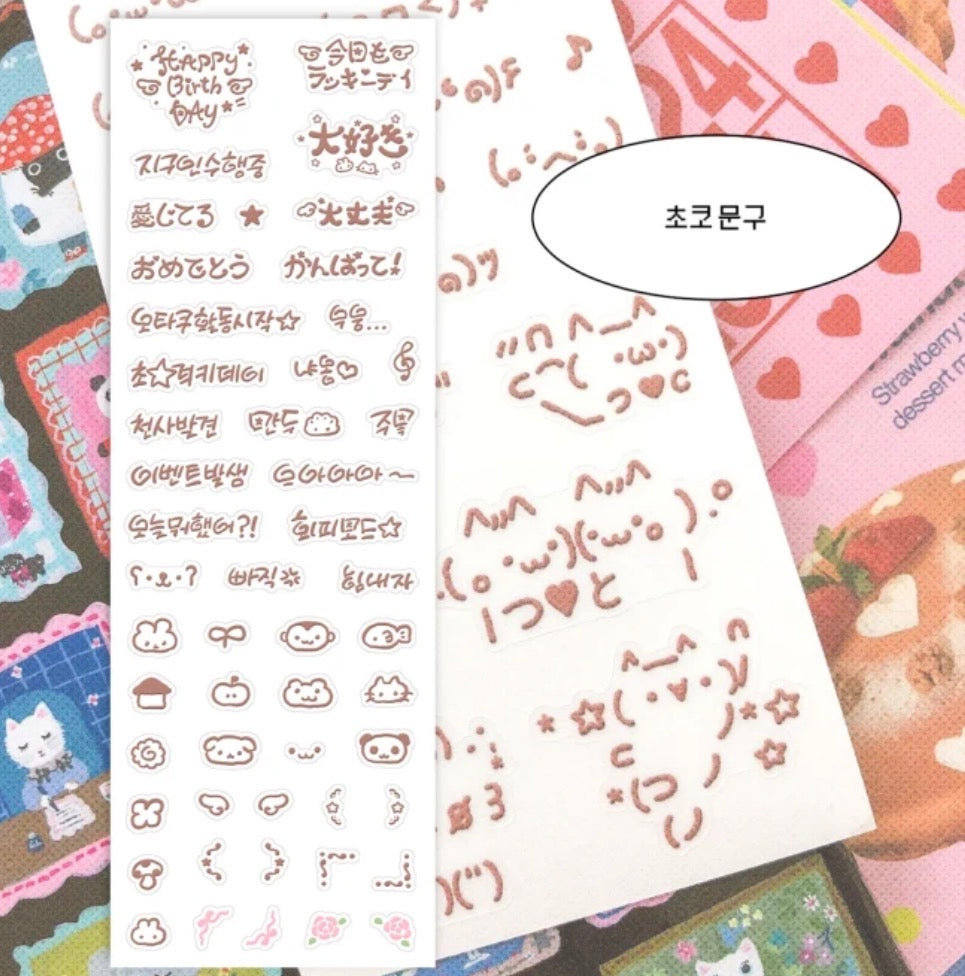 Happy
Birth
DAY
今日も
ラッキーデイ
大好き
지구인수행중
愛してる
大丈夫
おめでとう
がんばって!
오타쿠활동시작☆
욱웅...
초☆럭키데이
냐옹♡
천사발견
만두
주목
이벤트발생
으아아아~
오늘뭐했어?!
해피모드☆
ʕ·ᴥ·ʔ
빠직
힘내자
초코 문구
04
Strawberry
dessert m